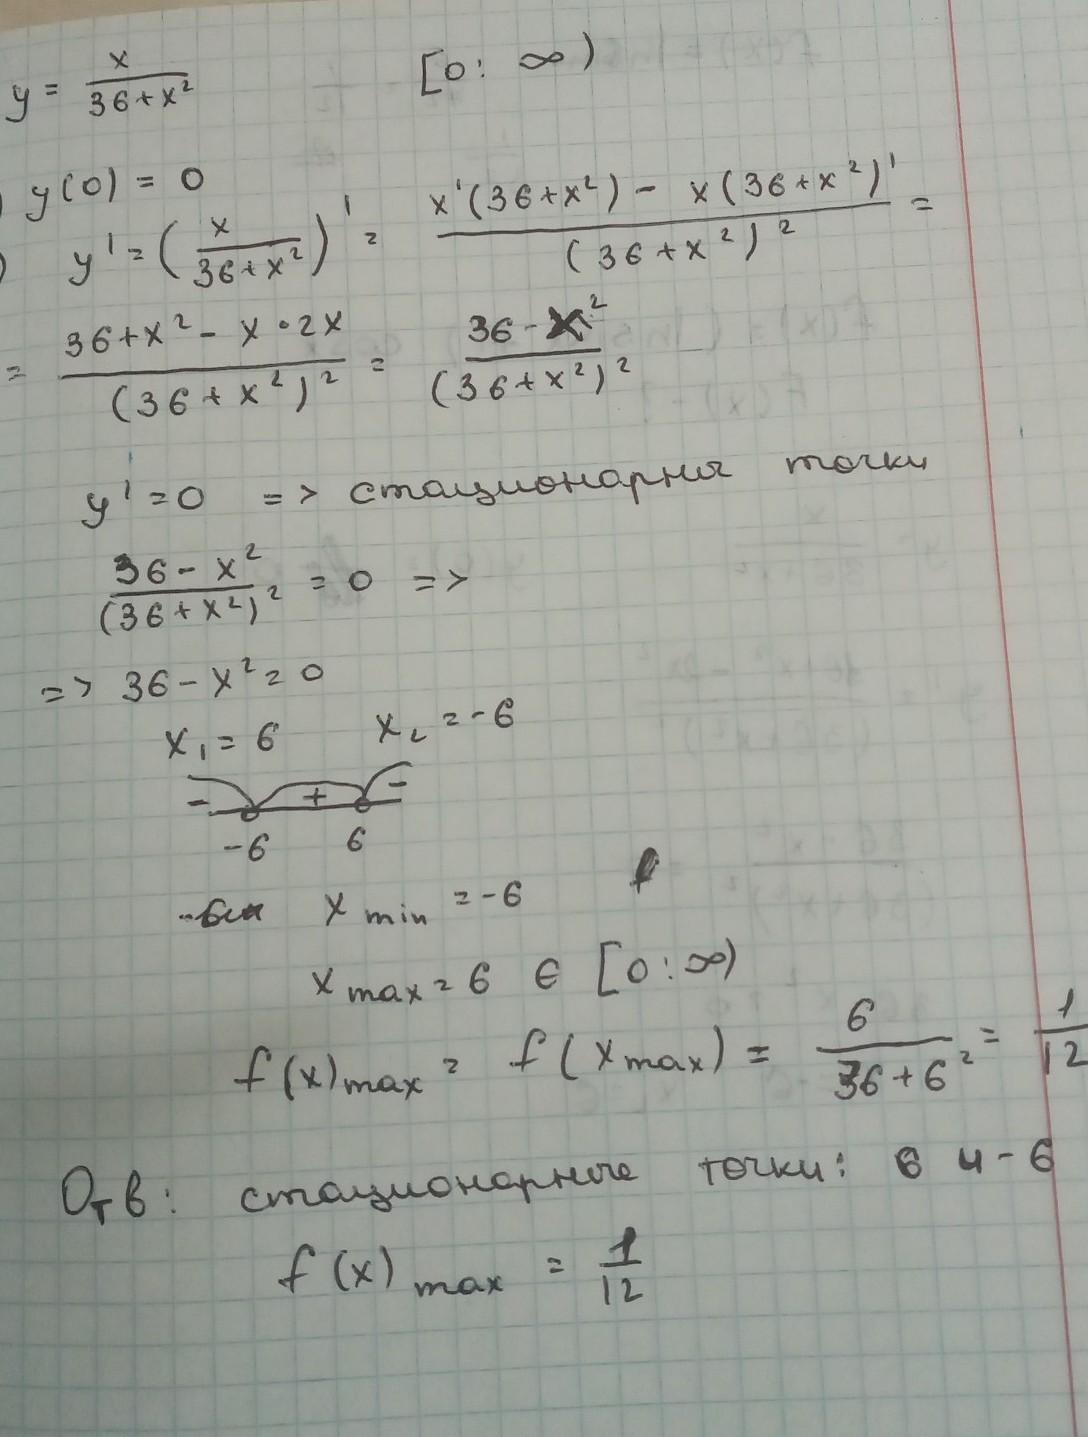 y = x/(36+x²) [0: ∞)
) y(0) = 0
) y' = (x/(36+x²))' = (x'(36+x²) - x(36+x²)')/(36+x²)² =
= (36+x² - x·2x)/(36+x²)² = (36-x²)/(36+x²)²
y' = 0 => стационарные точки
(36-x²)/(36+x²)² = 0 =>
=> 36-x² = 0
x₁ = 6 x₂ = -6
- + -
-6 6
x min = -6
x max = 6 ∈ [0:∞)
f(x)max = f(xmax) = 6/(36+6²) = 1/12
Отв: стационарные точки: 6 и -6
f(x) max = 1/12